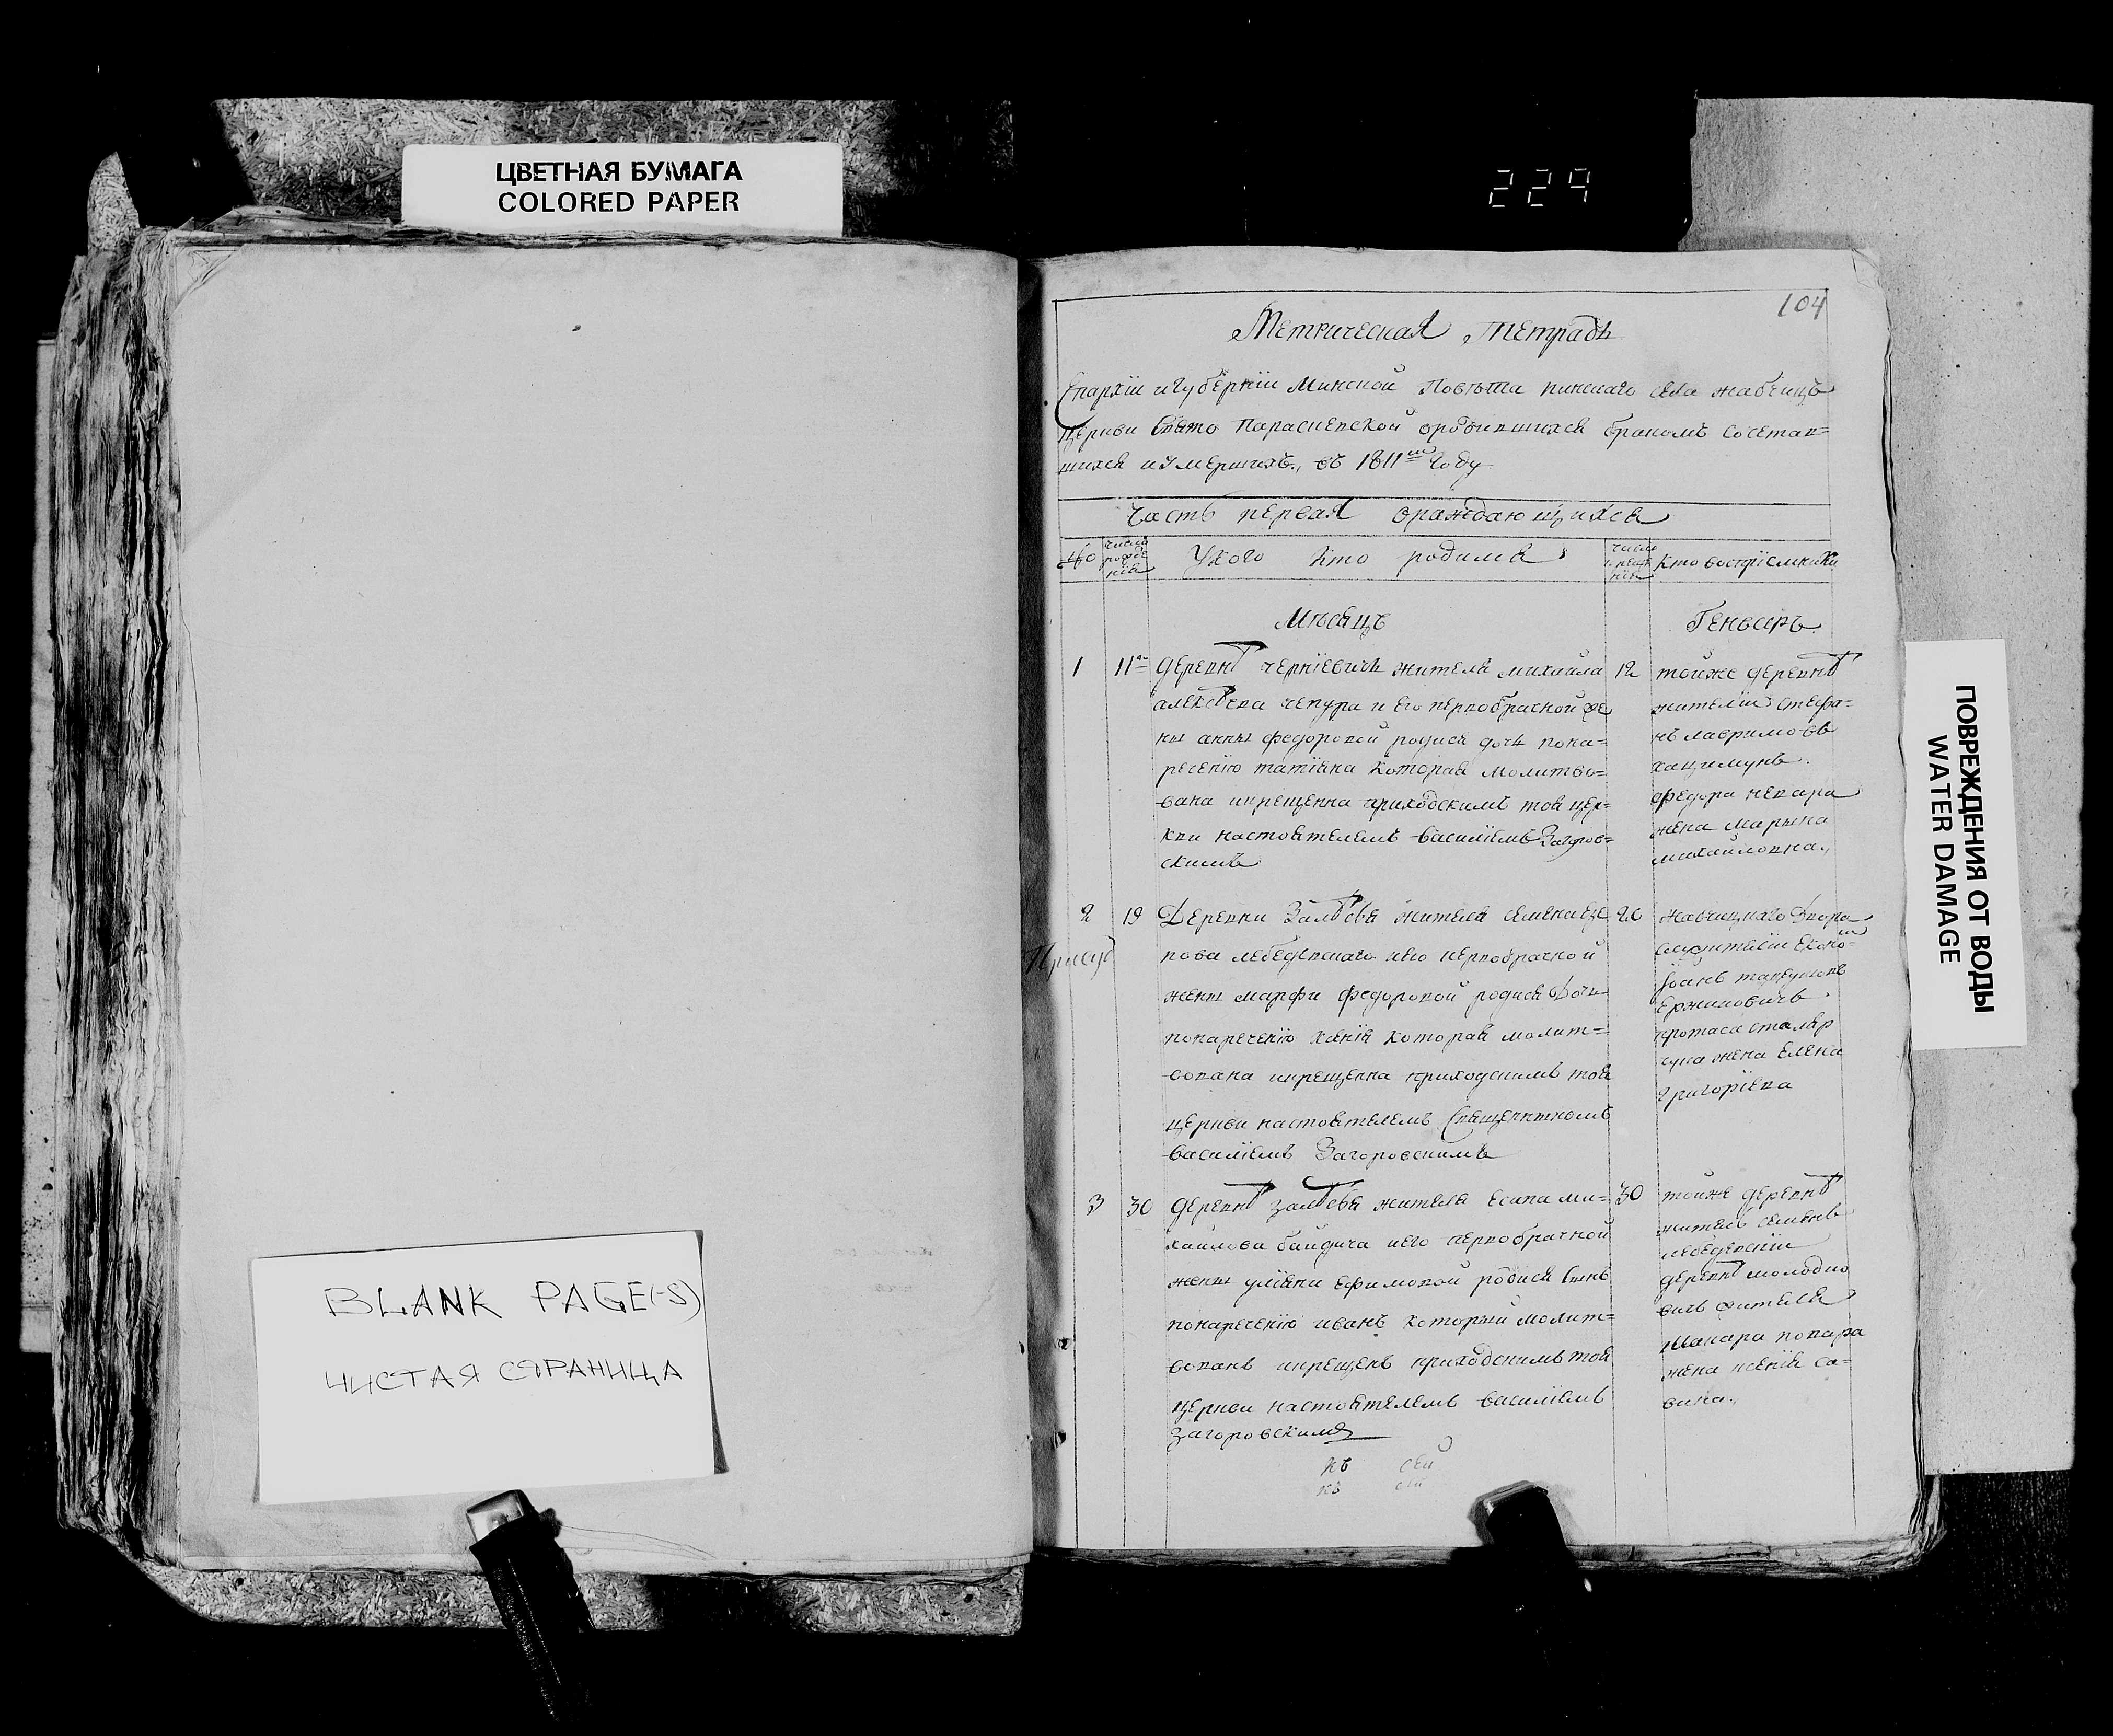 ЦВЕТНАЯ БУМАГА
COLORED PAPER
229
ПОВРЕЖДЕНИЯ ОТ ВОДЫ
WATER DAMAGE
BLANK PAGE(-S)
ЧИСТАЯ СТРАНИЦА
104
Метрическая Тетрадь
Епархіи и Губерніи Минской Повѣта пинскаго села жабчицъ
церкви Свято Параскевской ородившихся бракомъ сочетав=
шихся и умершихъ, въ 1811м Году
Часть первая ораждающихся
число рожденія
Укого кто родился
число крещенія
кто восприемники
Мѣсяцъ
Геньварь
1
11го
деревнѣ чернѣевичь жителя михаила
алексѣева чепура и его первобрачной же
ны анны федоровой родися дочь пона=
речению татіяна которая молитво=
вана икрещенна приходскимъ той цер=
кви настоятелемъ василіемъ Загоров=
скимъ
12
тойже деревнѣ
жители Стефа=
нъ
федора
жена марына
михайловна.
2
19
Деревни Залѣсья жителя семена
пова лебедевскаго иего первобрачной
жены марфи федоровой родися Дочь
понаречению ксенія которая молит=
вована икрещенна приходскимъ той
церкви настоятелемъ Священникомъ
василіемъ Загоровскимъ
20
Двора
Іоанъ
протаса столяр
жена Елена
григоріева
3
30
деревнѣ залѣсья жителя есипа ми=
хаилова байдича иего первобрачной
жены уліяни ефимовой родися Сынъ
понаречению иванъ который молит=
вованъ икрещенъ приходскимъ той
церкви настоятелемъ василіемъ
Загоровскимъ
30
тойже деревнѣ
житель семенъ
лебедевскій
деревнѣ молодко
вичь жителя
Макара
жена ксенія са=
вина.
къ сей
къ сей